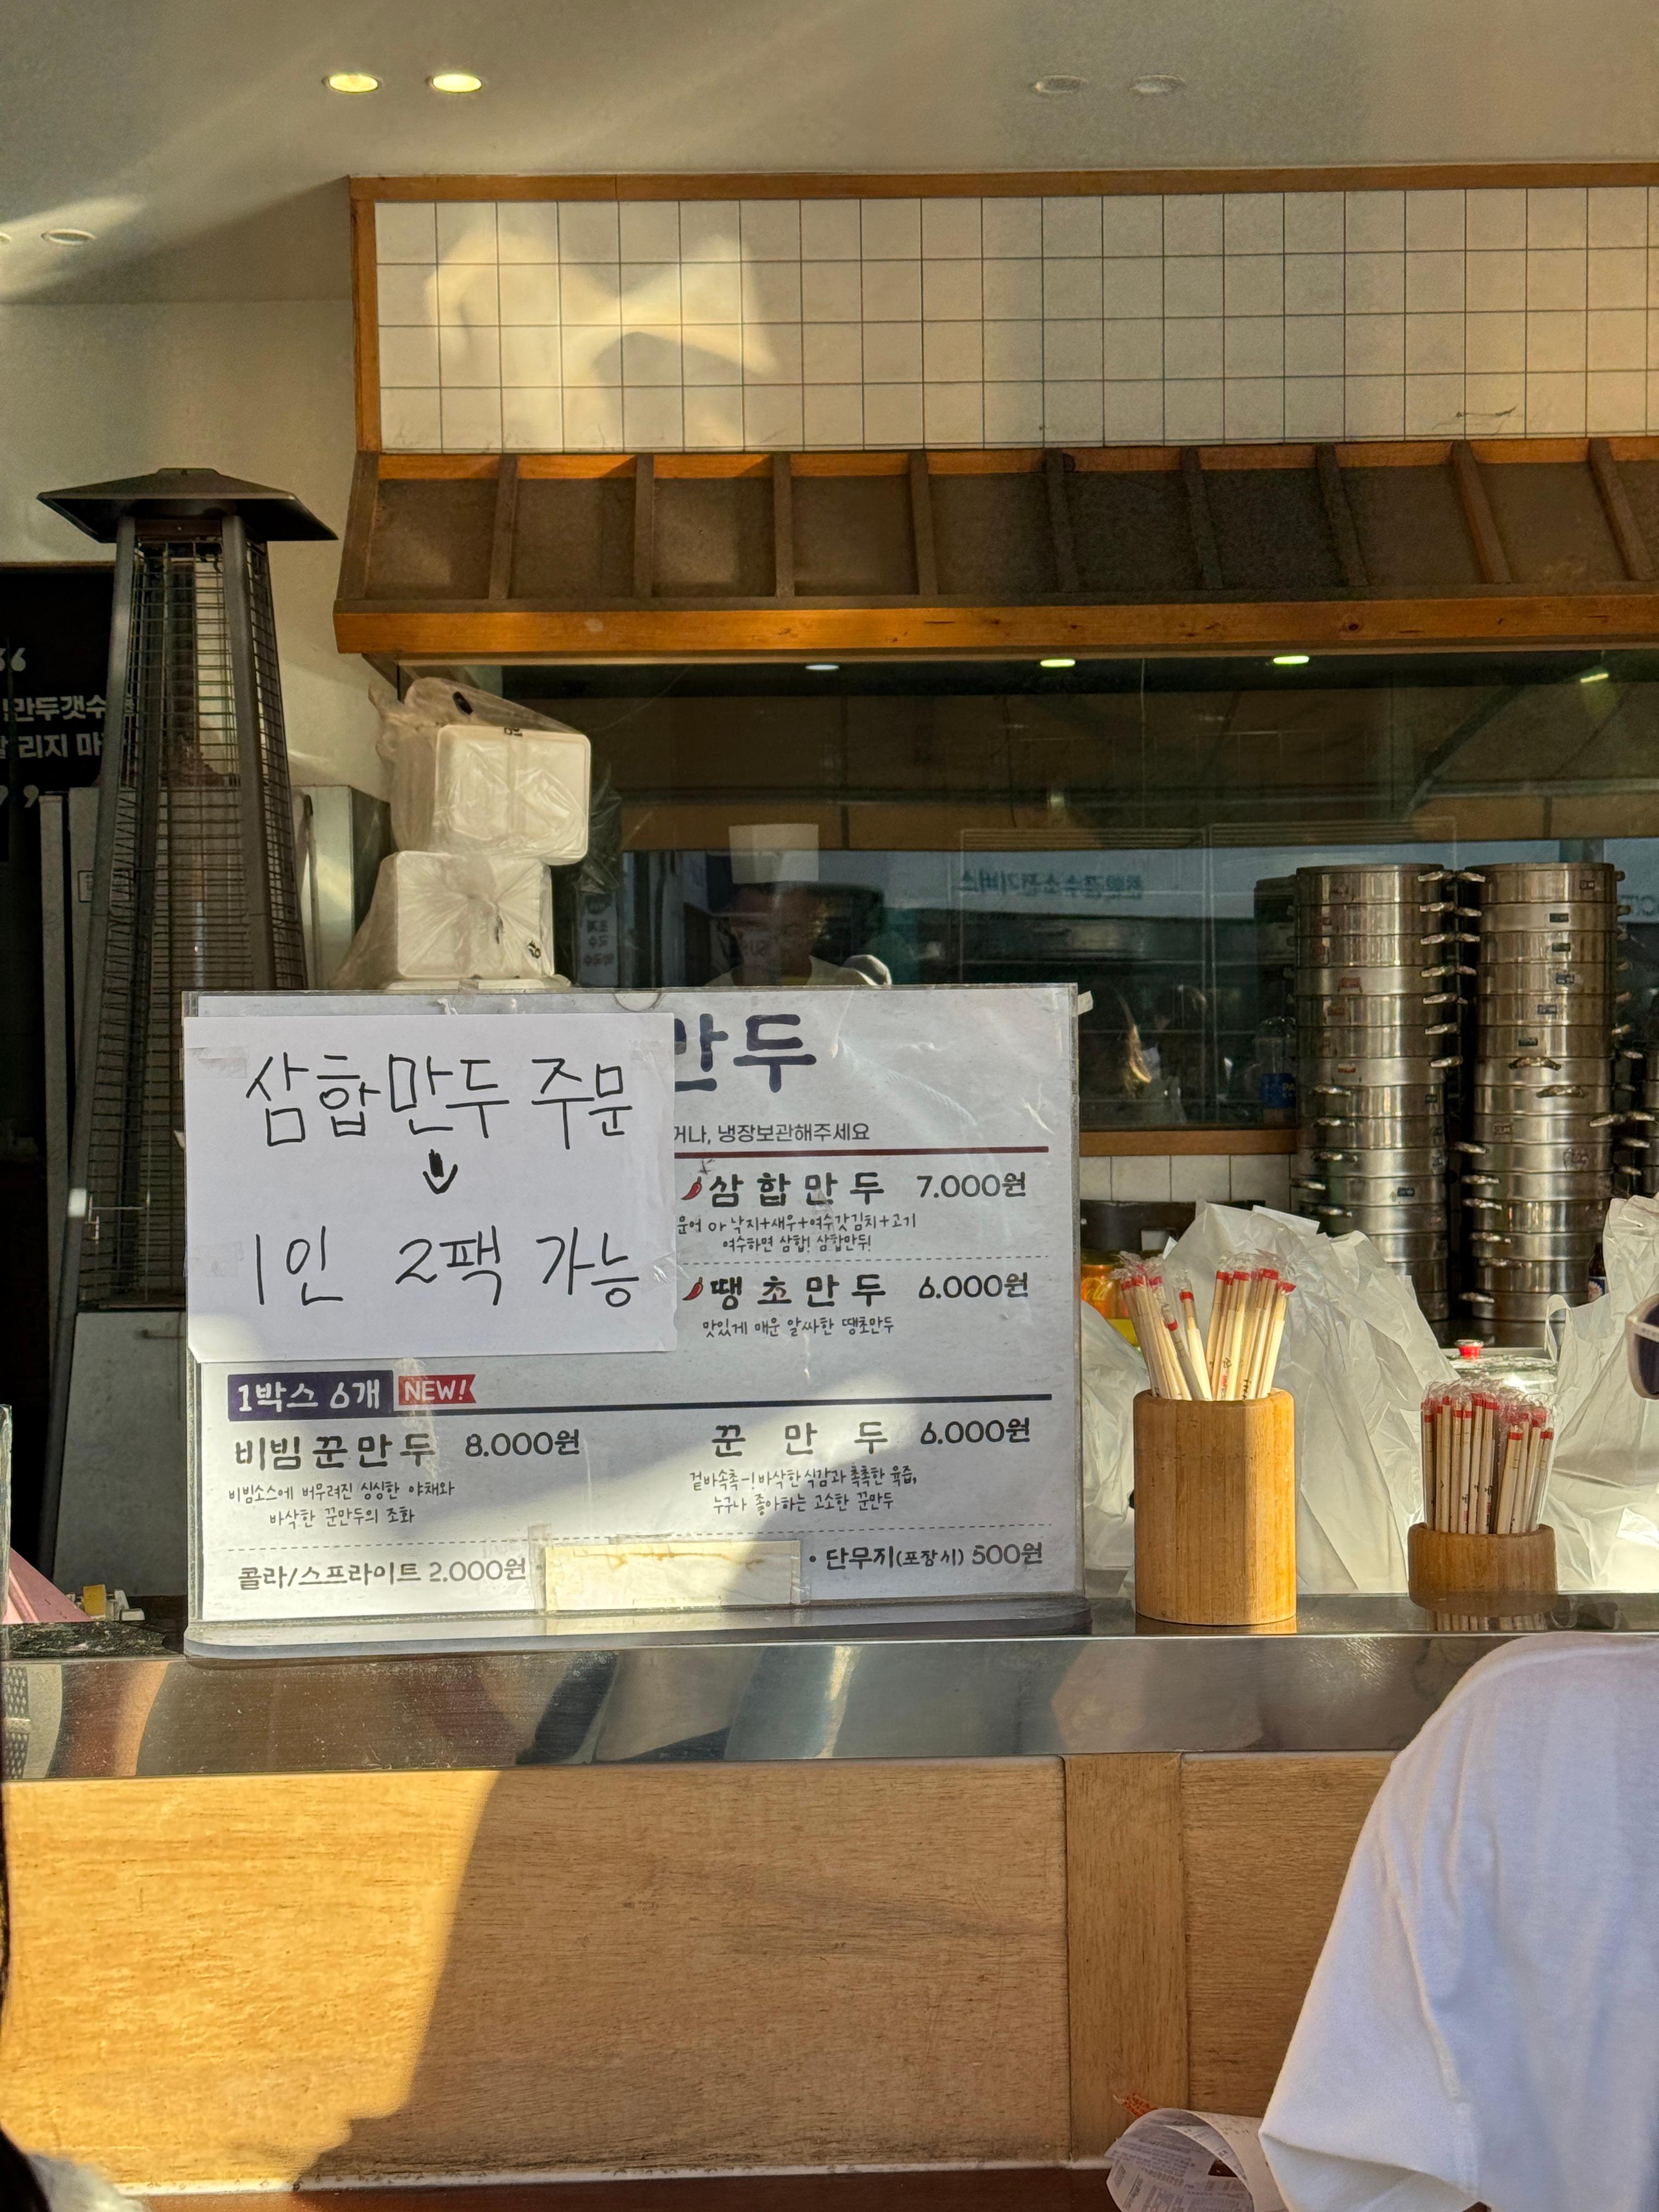 만두갯수
리지 마
삼합만두 주문
↓
1인 2팩 가능
만두
거나, 냉장보관해주세요
삼합만두 7.000원
낙지+새우+여수갓김치+고기
여수하면 삼합! 삼합만두!
땡초만두 6.000원
맛있게 매운 알싸한 땡초만두
1박스 6개 NEW!
비빔꾼만두 8.000원
비빔소스에 버무려진 싱싱한 야채와
바삭한 꾼만두의 조화
꾼만두 6.000원
겉바속촉-! 바삭한 식감과 촉촉한 육즙,
누구나 좋아하는 고소한 꾼만두
콜라/스프라이트 2.000원
• 단무지(포장시) 500원